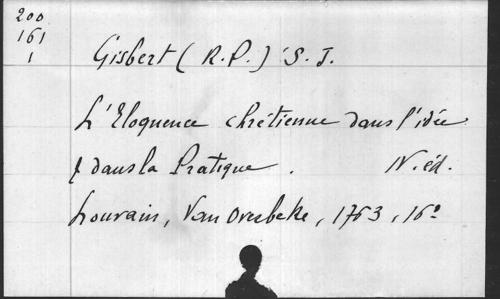 200
161
1
Gisbert (R.P.) S.J.
L'Eloquence chrétienne dans l'idée
& dans la Pratique. N. éd.
Louvain, Van Overbeke, 1763, 16°